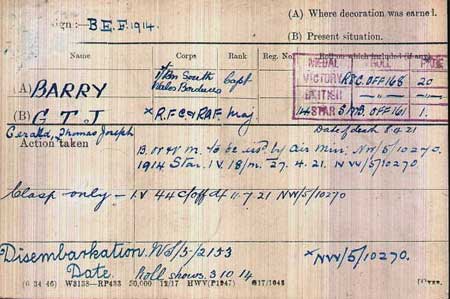 (A) Where decoration was earned.
sign :- B.E.F. 1914.
(B) Present situation.
Name Corps Rank Reg. No. Roll on which included (if any)
MEDAL ROLL PAGE
(A) BARRY 1/Bn South Wales Borderers Capt
VICTORY R.F.C. OFF 168 20
BRITISH -"- -"-
(B) G T J x R.F.C & RAF. Maj
14 STAR S.W.B. OFF/161 1.
Gerald, Thomas Joseph Date of death 8.4.21
Action taken B.W & V M. to be issd by Air Min: NW/5/10270.
1914 Star. I.V. 18/m. 27.4.21. NW/5/10270.
Clasp only - I.V 44 C/off d/ 11.7.21 NW/5/10270
Disembarkation. WS/5/2153 x NW/5/10270.
Date. Roll shows. 3 10 14
(6 34 46) W3158—RP433 50,000 12/17 HWV(P1947) G17/1643